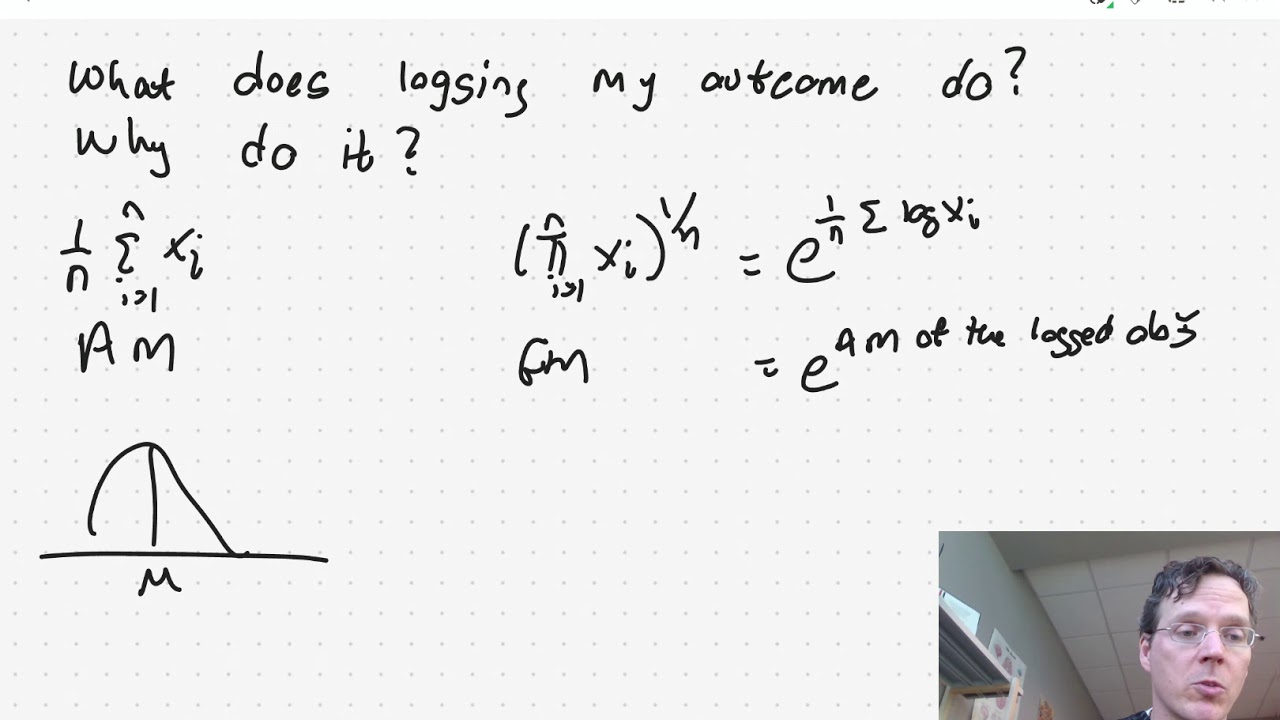 What does logging my outcome do?
Why do it?
1/n Σ_{i=1}^{n} x_i
(∏_{i=1}^{n} x_i)^{1/n} = e^{1/n Σ log x_i}
AM
GM = e^{AM of the logged obs}
μ